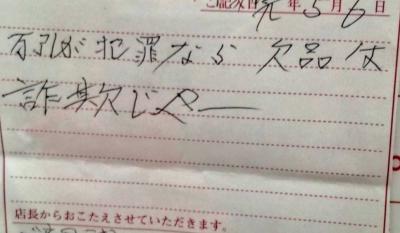 ご記入日 元年5月6日
万引が犯罪なら欠品は
詐欺じゃー
店長からおこたえさせていただきます。